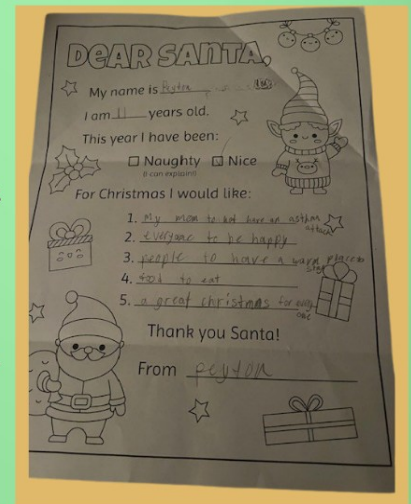 DEAR SANTA,
My name is Peyton
I am 11 years old.
This year I have been:
Naughty Nice
(I can explain!)
For Christmas I would like:
1. My mom to not have an asthma
attack
2. everyone to be happy
3. people to have a warm place to
stay
4. food to eat
5. a great christmas for every
one
Thank you Santa!
From peyton